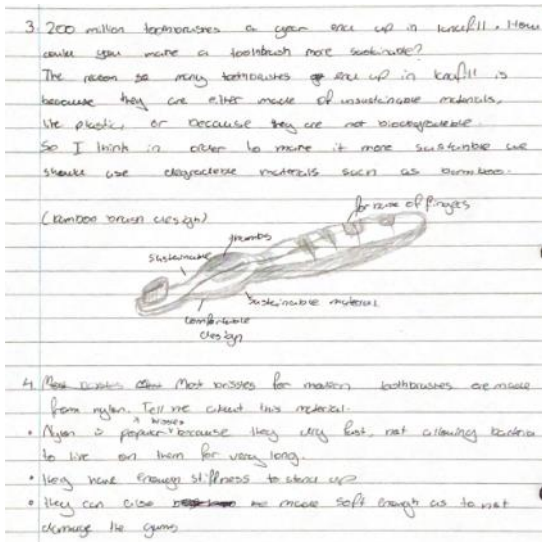 3. 200 million toothbrushes a year end up in landfill. How
could you make a toothbrush more sustainable?
The reason so many toothbrushes end up in landfill is
because they are either made of unsustainable materials,
like plastic, or because they are not biodegradable.
So I think in order to make it more sustainable we
should use degradable materials such as bamboo.
(bamboo brush design)
for name of fingers
thumbs
sustainable
sustainable material
comfortable
design
4. Most brissles for modern toothbrushes are made
from nylon. Tell me about this material.
• Nylon is popular brissles because they dry fast, not allowing bacteria
to live on them for very long.
• they have enough stiffness to stand up
• they can also be made soft enough as to not
damage the gums